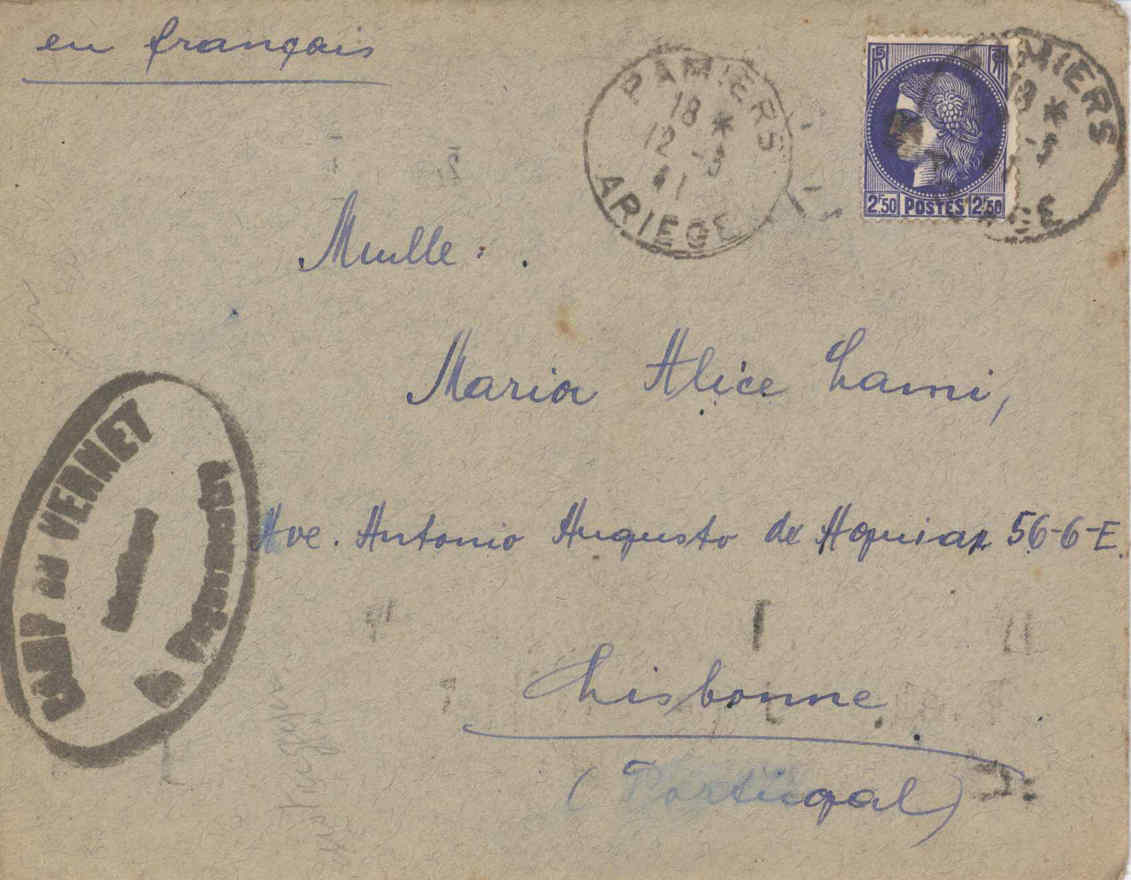 en français
PAMIERS
18 *
12 - 3
41
ARIEGE
2F50 POSTES 2F50
PAMIERS
18 *
- 3
GE
Mmlle.
Maria Alice Lami,
Ave. Antonio Augusto de Aquiar 56-6-E.
Lisbonne
(Portugal)
CAMP DU VERNET